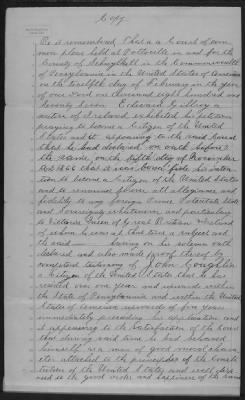 Copy
Be it remembered That a Court of com
mon pleas held at Pottsville in and for the
County of Schuylkill in the Commonwealth
of Pennsylvania in the United States of America
on the twelfth day of February in the year
of our Lord one thousand eight hundred and
Seventy Seven Edward Gallaway a
native of Ireland exhibited his petition
praying to become a Citizen of the United
States and it appearing to the said Court
that he had declared on oath before
the same, on the fifth day of November
1866 that it was bona fide his inten
tion to become a Citizen of the United States
and to renounce forever all allegiance and
fidelity to any foreign Prince Potentate State
and Sovereignty whatsoever and particularly
to Victoria Queen of Great Britain & Ireland
of whom he was at that time a subject and
the said having on his solemn oath
declared and also made proof thereof by
competent testimony of John Coughlin
a Citizen of the United States that he has
resided one year and upwards within
the State of Pennsylvania and within the United
States of America upwards of five years
immediately preceding his application and
it appearing to the satisfaction of the Court
that during said time he had behaved
himself as a man of good moral charac
ter attached to the principles of the Consti
tution of the United States and well dispo
sed to the good order and happiness of the same